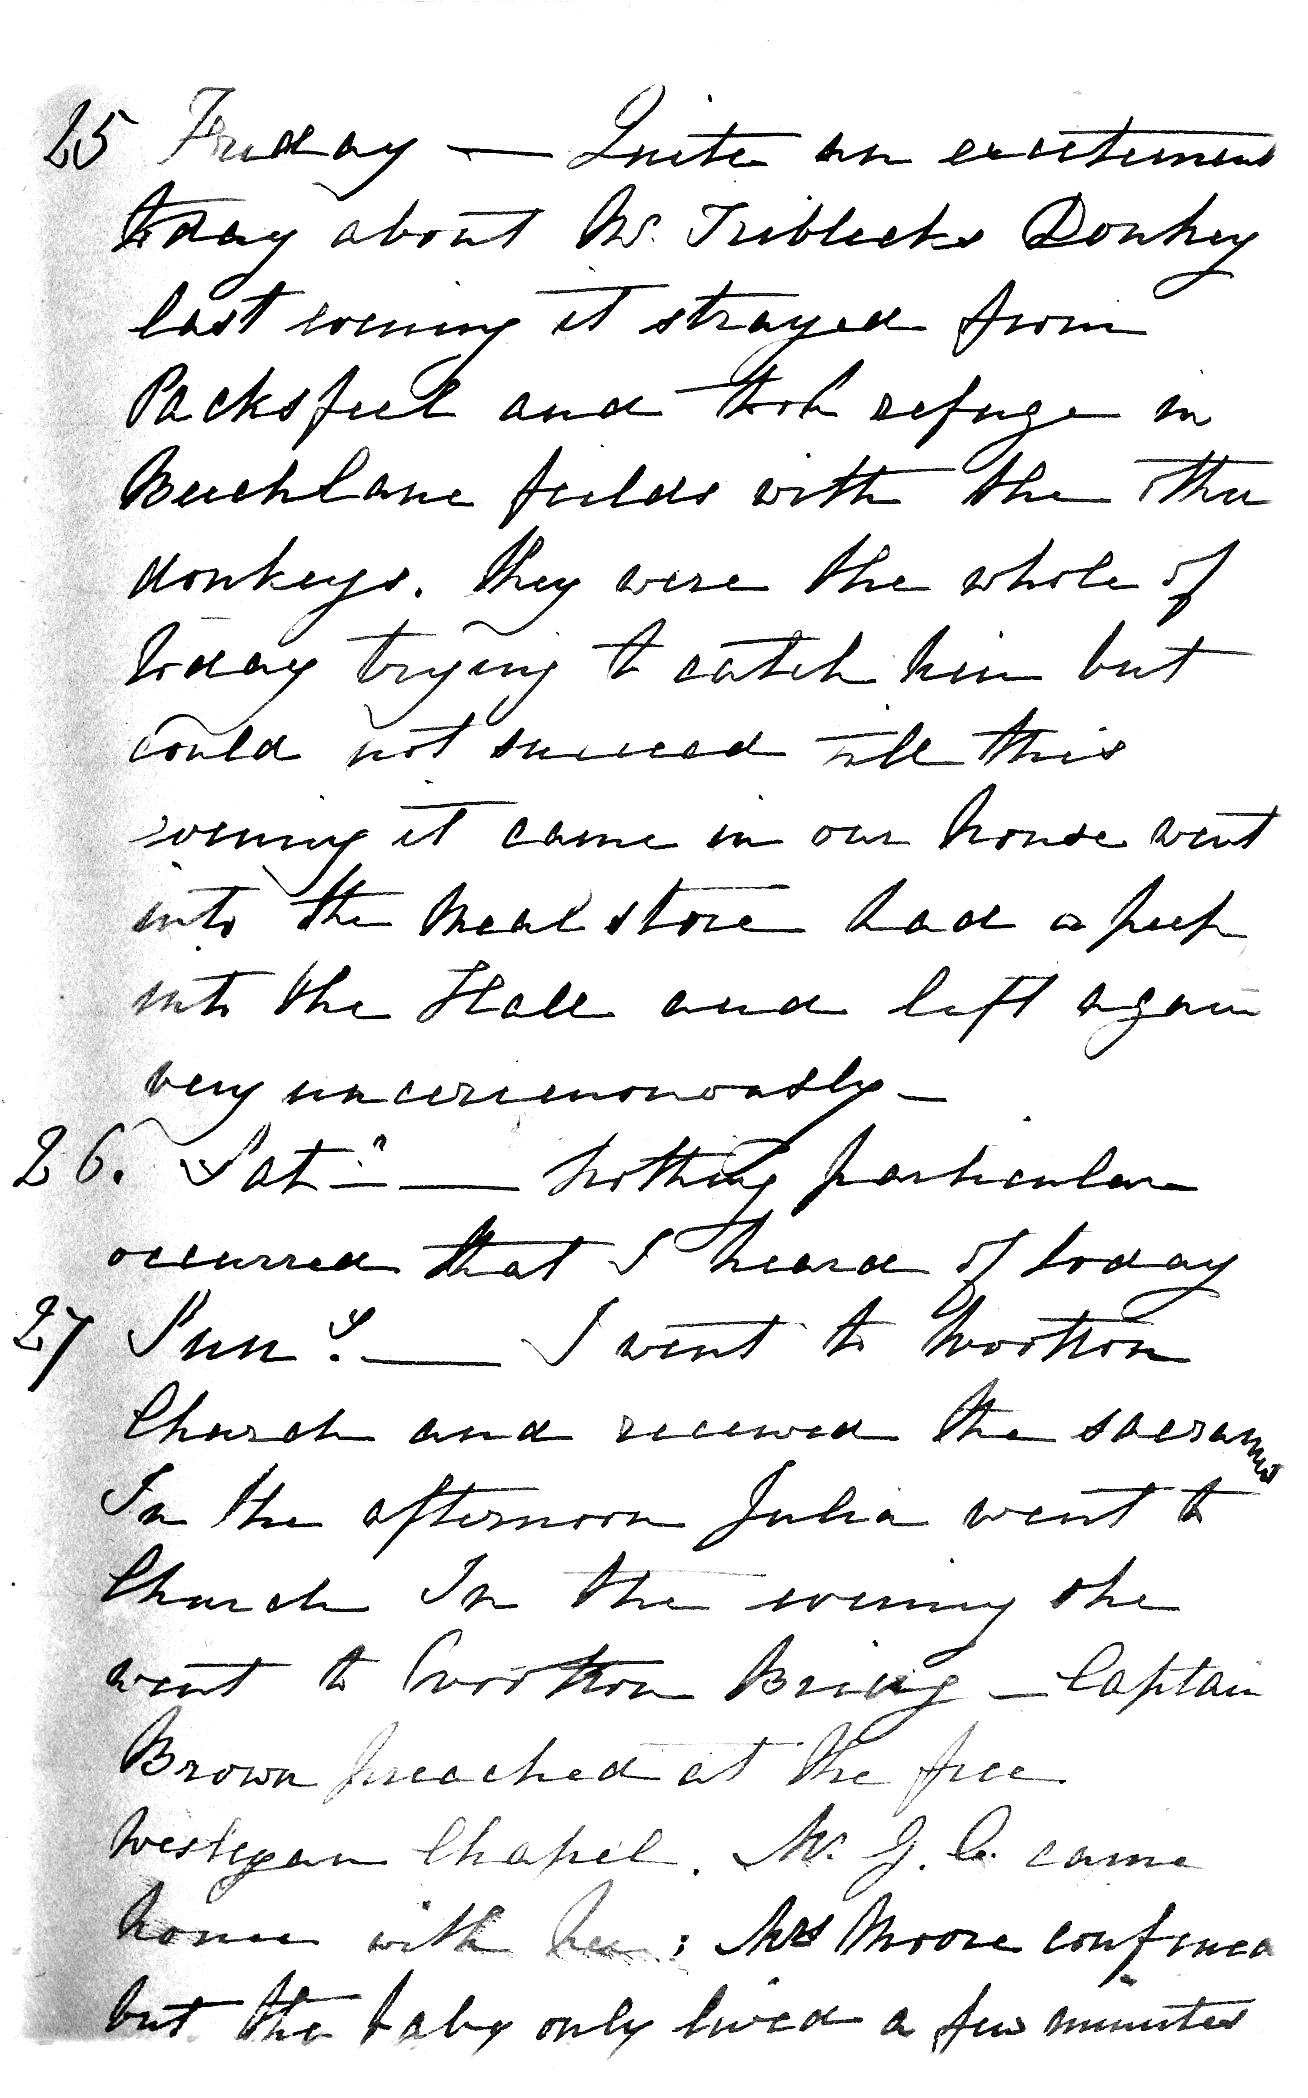 25 Friday — Quite an excitement
today about Mr. Triblecks Donkey
last evening it strayed from
Packsfield and took refuge in
Beechlane fields with the other
donkeys. they were the whole of
today trying to catch him but
could not succeed till this
evening it came in our house went
into the Meal store had a peep
into the Hall and left again
very unceremonously —
26. Satn — Nothing particular
occurred that I heard of today
27 Suny. — I went to Wootton
Church and received the sacrament
In the afternoon Julia went to
Church In the evening she
went to Wootton Bridg — Captain
Brown preached at the free
Wesleyan Chapel. Mr. J. C. came
home with her: Mrs Moore confined
but the baby only lived a few minutes